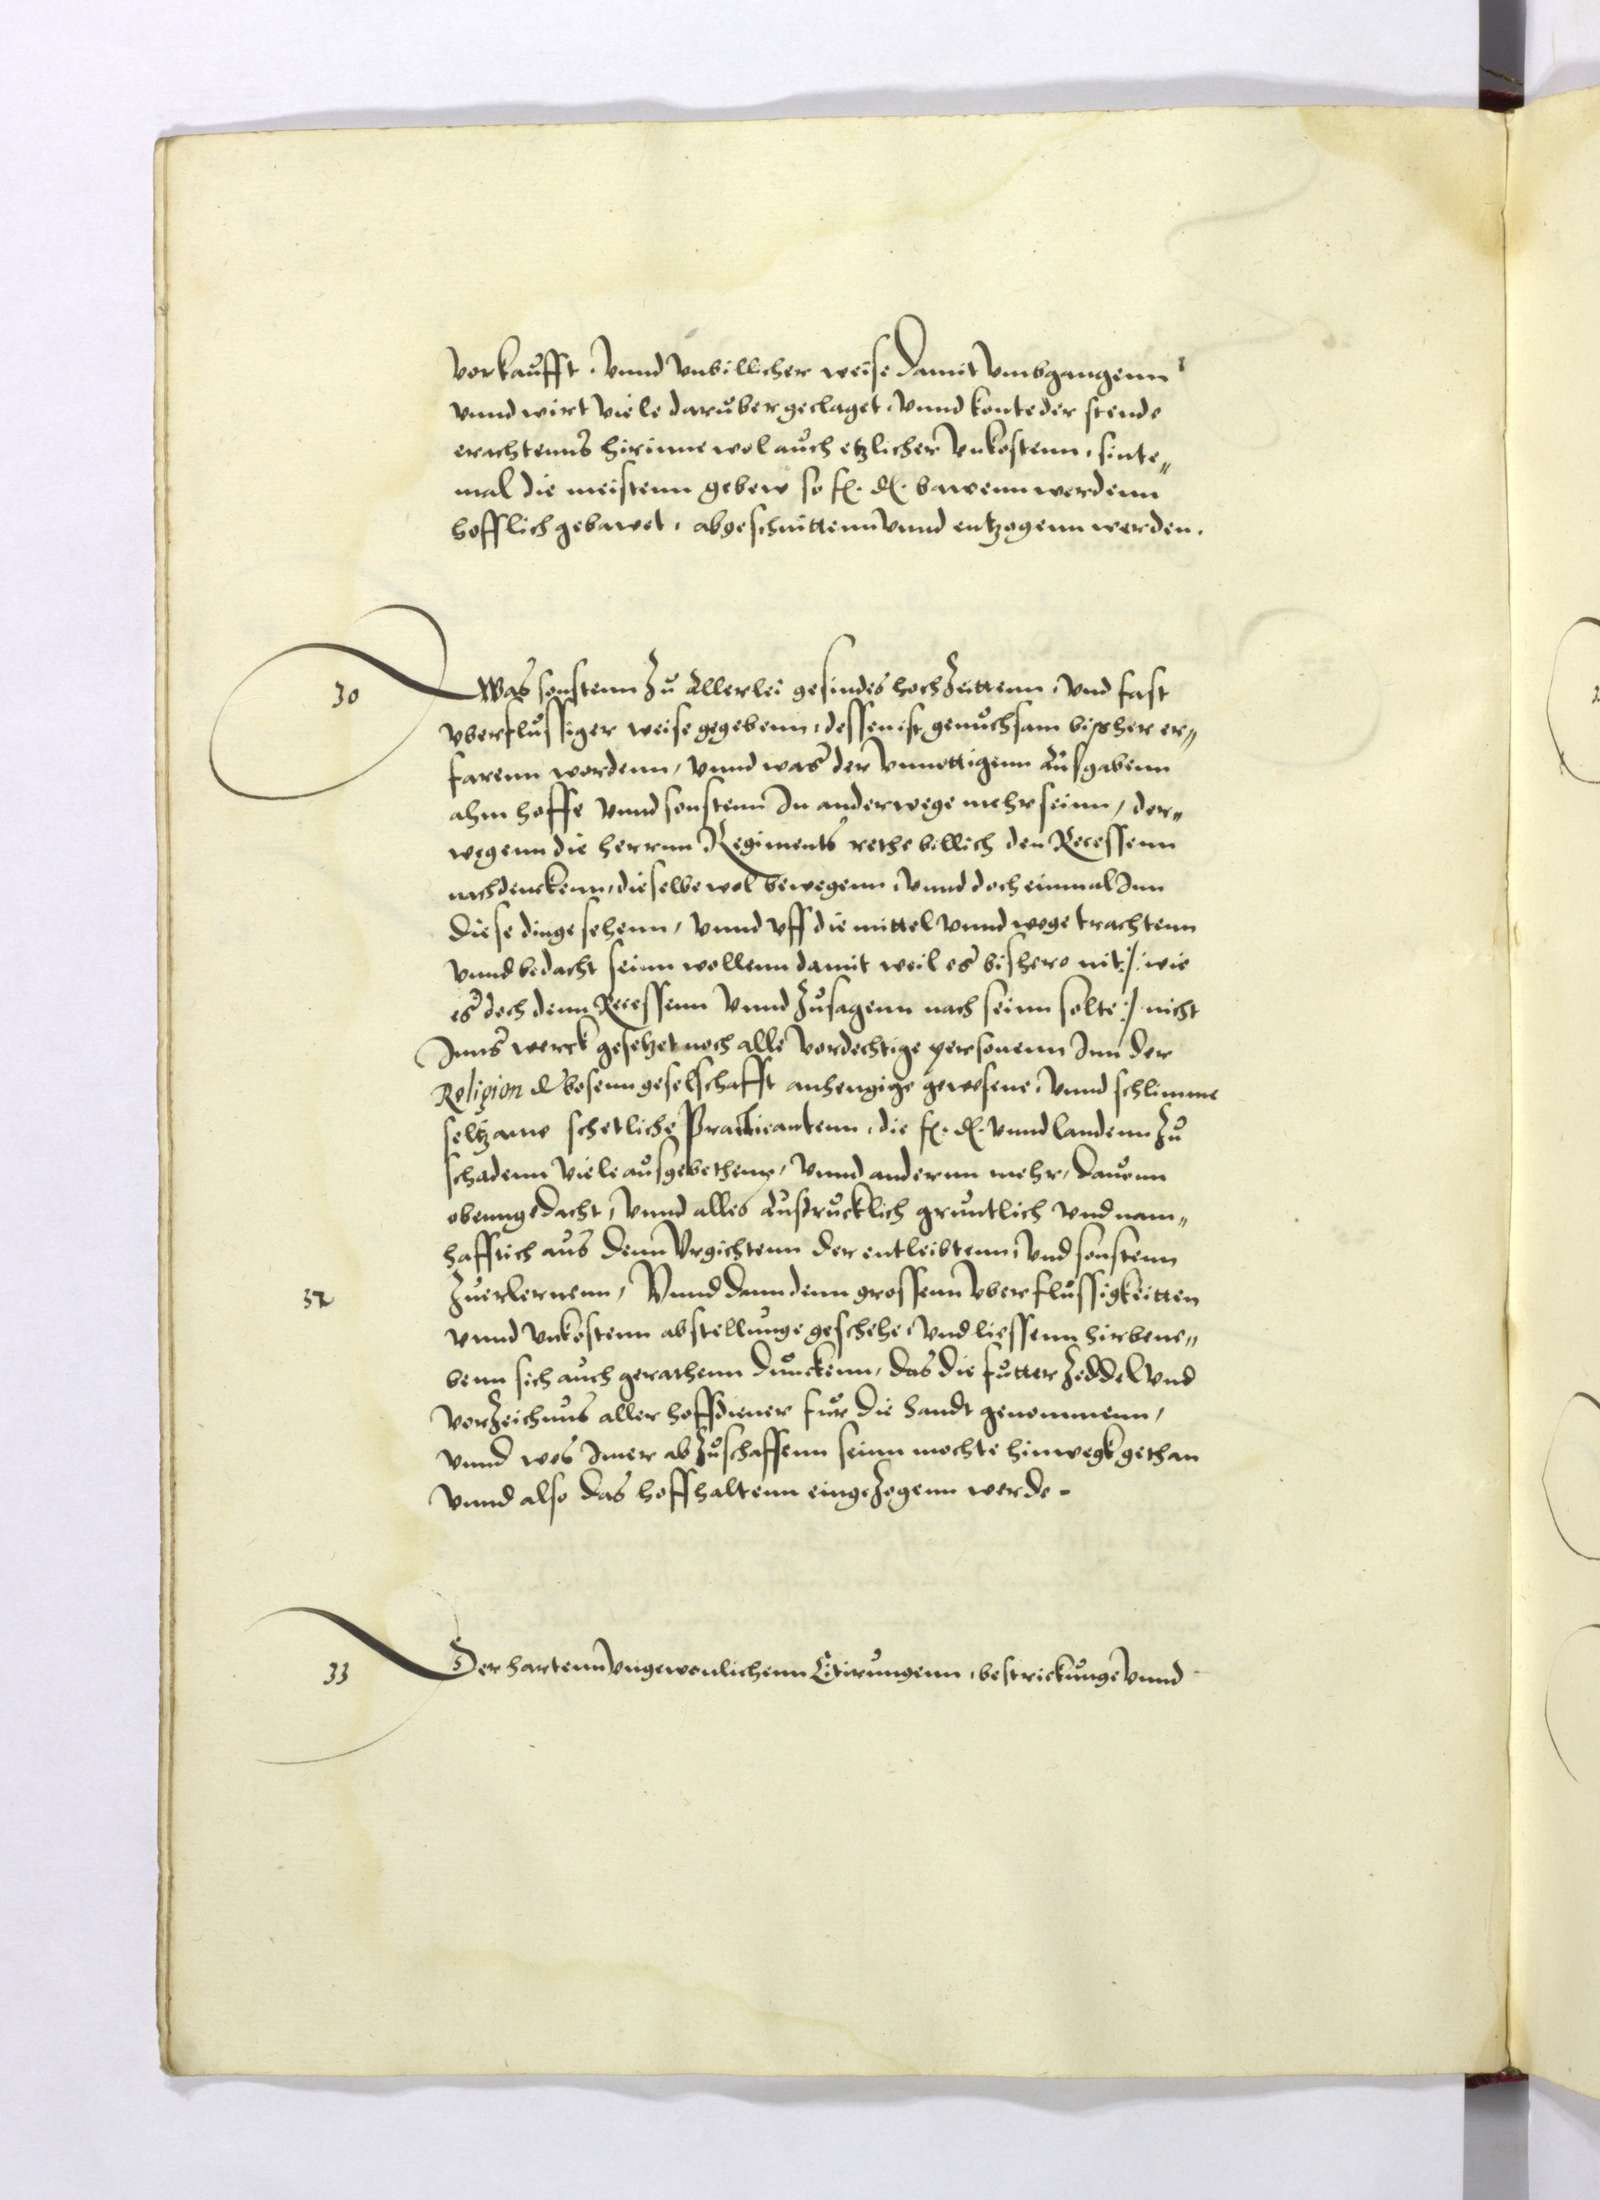 vorkaufft, vnnd vnbillicher weise damit vmbgangenn
vnnd wirt viele daruber geclaget, vnnd konte der stende
erachtenns hirinne wol auch etzlicher vnkostenn, sinte„
mal die meistenn gebew so f. d. bawenn werdenn
hofflich gebawet, abgeschnittenn vnnd entzogenn werden.
30 Was sonstenn zu allerlei gesindes hochzeittenn, vnd fast
vberflussiger weise gegebenn, dessen ist genuchsam bissher er„
farenn wordenn, vnnd was der vnnottigenn ausgabenn
ahm hoffe vnnd sonstenn in anderwege mehr seinn, der„
wegenn die herrnn Regiments rethe billich den Recessenn
nachdenckenn, dieselbe wol bewegenn, vnnd doch einmal inn
diese dinge sehenn, vnnd vff die mittel vnnd wege trachtenn
vnnd bedacht seinn wollenn damit weil es bishero nit :/: wie
es doch denn Recessenn vnnd zusagenn nach seinn solte :/ nicht
inns werck gesetzet noch alle vordechtige personenn inn der
Religion & bosenn geselschafft anhengige gewesene, vnnd schlimme
seltzame schetliche Practicantenn, die f. d. vnnd landenn zu
schadenn viele ausgebethenn, vnnd anderun mehr, dauonn
obenngedacht, vnnd alles ausdrucklich gruntlich vnd nam„
hafftich aus denn vrgichtenn der entleibtenn, vnd sonstenn
32 zuerlernenn, Vnnd dann denn grossenn vberflussigkeitten
vnnd vnkostenn abstellunge geschehe, vnd liessenn hirbene„
benn sich auch gerathenn dunckenn, das die futter zeddel vnd
vorzeichnus aller hoffdiener fur die handt genommenn,
vnnd wes imer abzuschaffenn seinn mochte hinwegk gethan
vnnd also das hoffhaltenn eingezogenn werde.
33 Der hartenn vngewonlichenn Citirungenn, bestrickunge vnnd